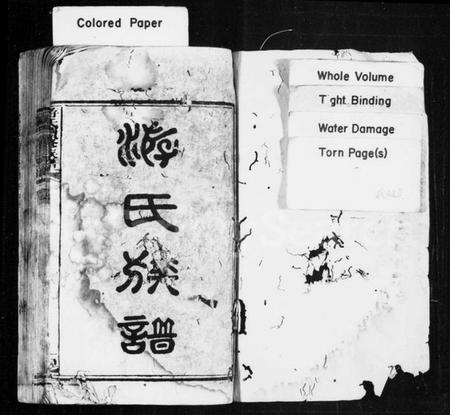 Colored Paper
Whole Volume
Tight Binding
Water Damage
Torn Page(s)
游氏族譜